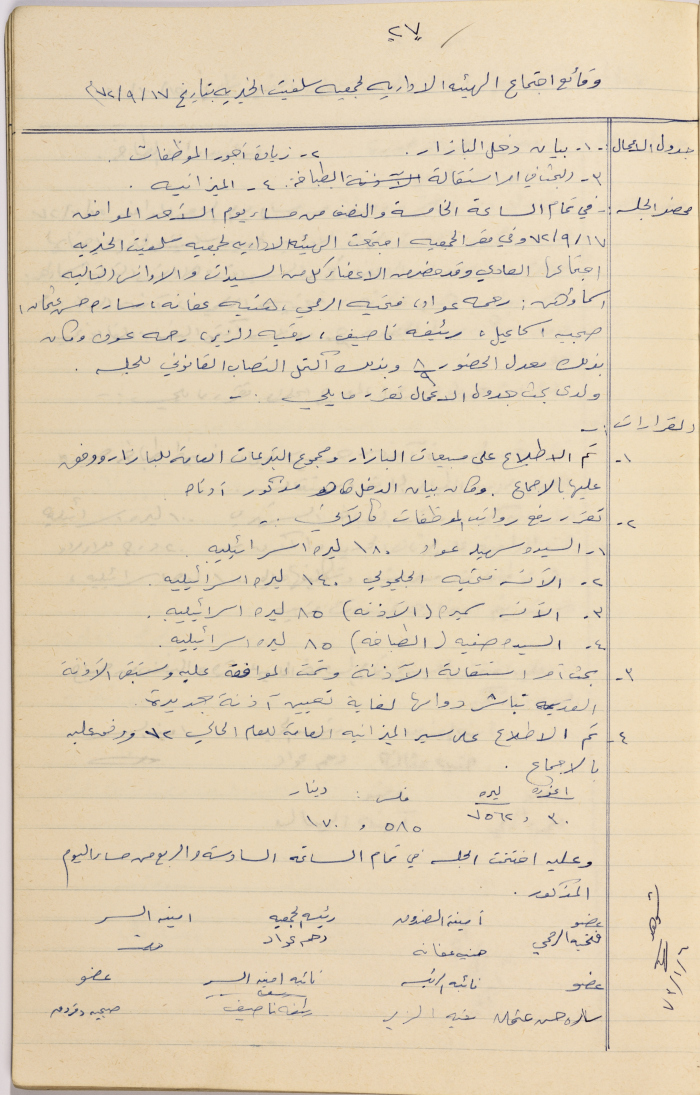 ٢٧
وقائع اجتماع الهيئه الاداريه لجمعيه سلفيت الخيريه بتاريخ ٧٢/٩/١٧م
جدول الاعمال :- ١- بيان دخل البازار . ٢- زيادة اجور الموظفات .
٣- البحث في امر استقالة الآذنة الطباخة . ٤- الميزانيه .
محضر الجلسه :- في تمام الساعة الخامسة والنصف من مساء يوم الاحد الموافق
٧٢/٩/١٧ وفي مقر الجمعيه اجتمعت الهيئه الاداريه لجمعيه سلفيت الخيريه
اجتماعها العادي وقد حضر من الاعضاء كل من السيدات والاوانس التاليه
اسماؤهن : رحمه عواد ، فتحيه الرمحي ، هنيه عفانه ، ساره حسن عثمان ،
صبحيه اسماعيل ، رئيفه ناصيف ، رقيه الزير ، رحمه عوده وكان
بذلك معدل الحضور ٨/٩ وبذلك اكتمل النصاب القانوني للجلسه .
ولدى بحث جدول الاعمال تقرر ما يلي :-
القرارات :-
١- تم الاطلاع على مبيعات البازار ومجموع التبرعات العامة للبازار ووفق
عليها بالاجماع . وكان بيان الدخل كما هو مذكور ادناه
٢- تقرر رفع رواتب الموظفات كالآتي :-
١- السيده سهيله عواد ١٨٠ ليره اسرائيليه .
٢- الآنسه فتحيه الجلجولي ١٤٠ ليره اسرائيليه
٣- الآنسه سميره (الآذنه) ٨٥ ليره اسرائيليه .
٤- السيده صفيه (الطباخه) ٨٥ ليره اسرائيليه .
٣- بحث امر استقالة الآذنة وتمت الموافقة عليه وستبقى الآذنة
القديمه تباشر دوامها لغاية تعيين آذنة جديدة .
٤- تم الاطلاع على سير الميزانيه العامة للعام الحالي ٧٢ ووفق عليه
بالاجماع .
اغوره ليره فلس : دينار
٣٠ و ٧٥٦٢ ٥٨٥ و ١٧٠
وعليه اختتمت الجلسه في تمام الساعة السادسة والربع من مساء اليوم
المذكور .
عضو أمينة الصندوق رئيسه الجمعيه امينه السر
فتحيه الرمحي هنيه عفانه رحمه عواد
عضو نائبه الرئيسه نائبه امينه السر عضو
ساره حسن عثمان رقيه الزير رئيفه ناصيف صبحيه